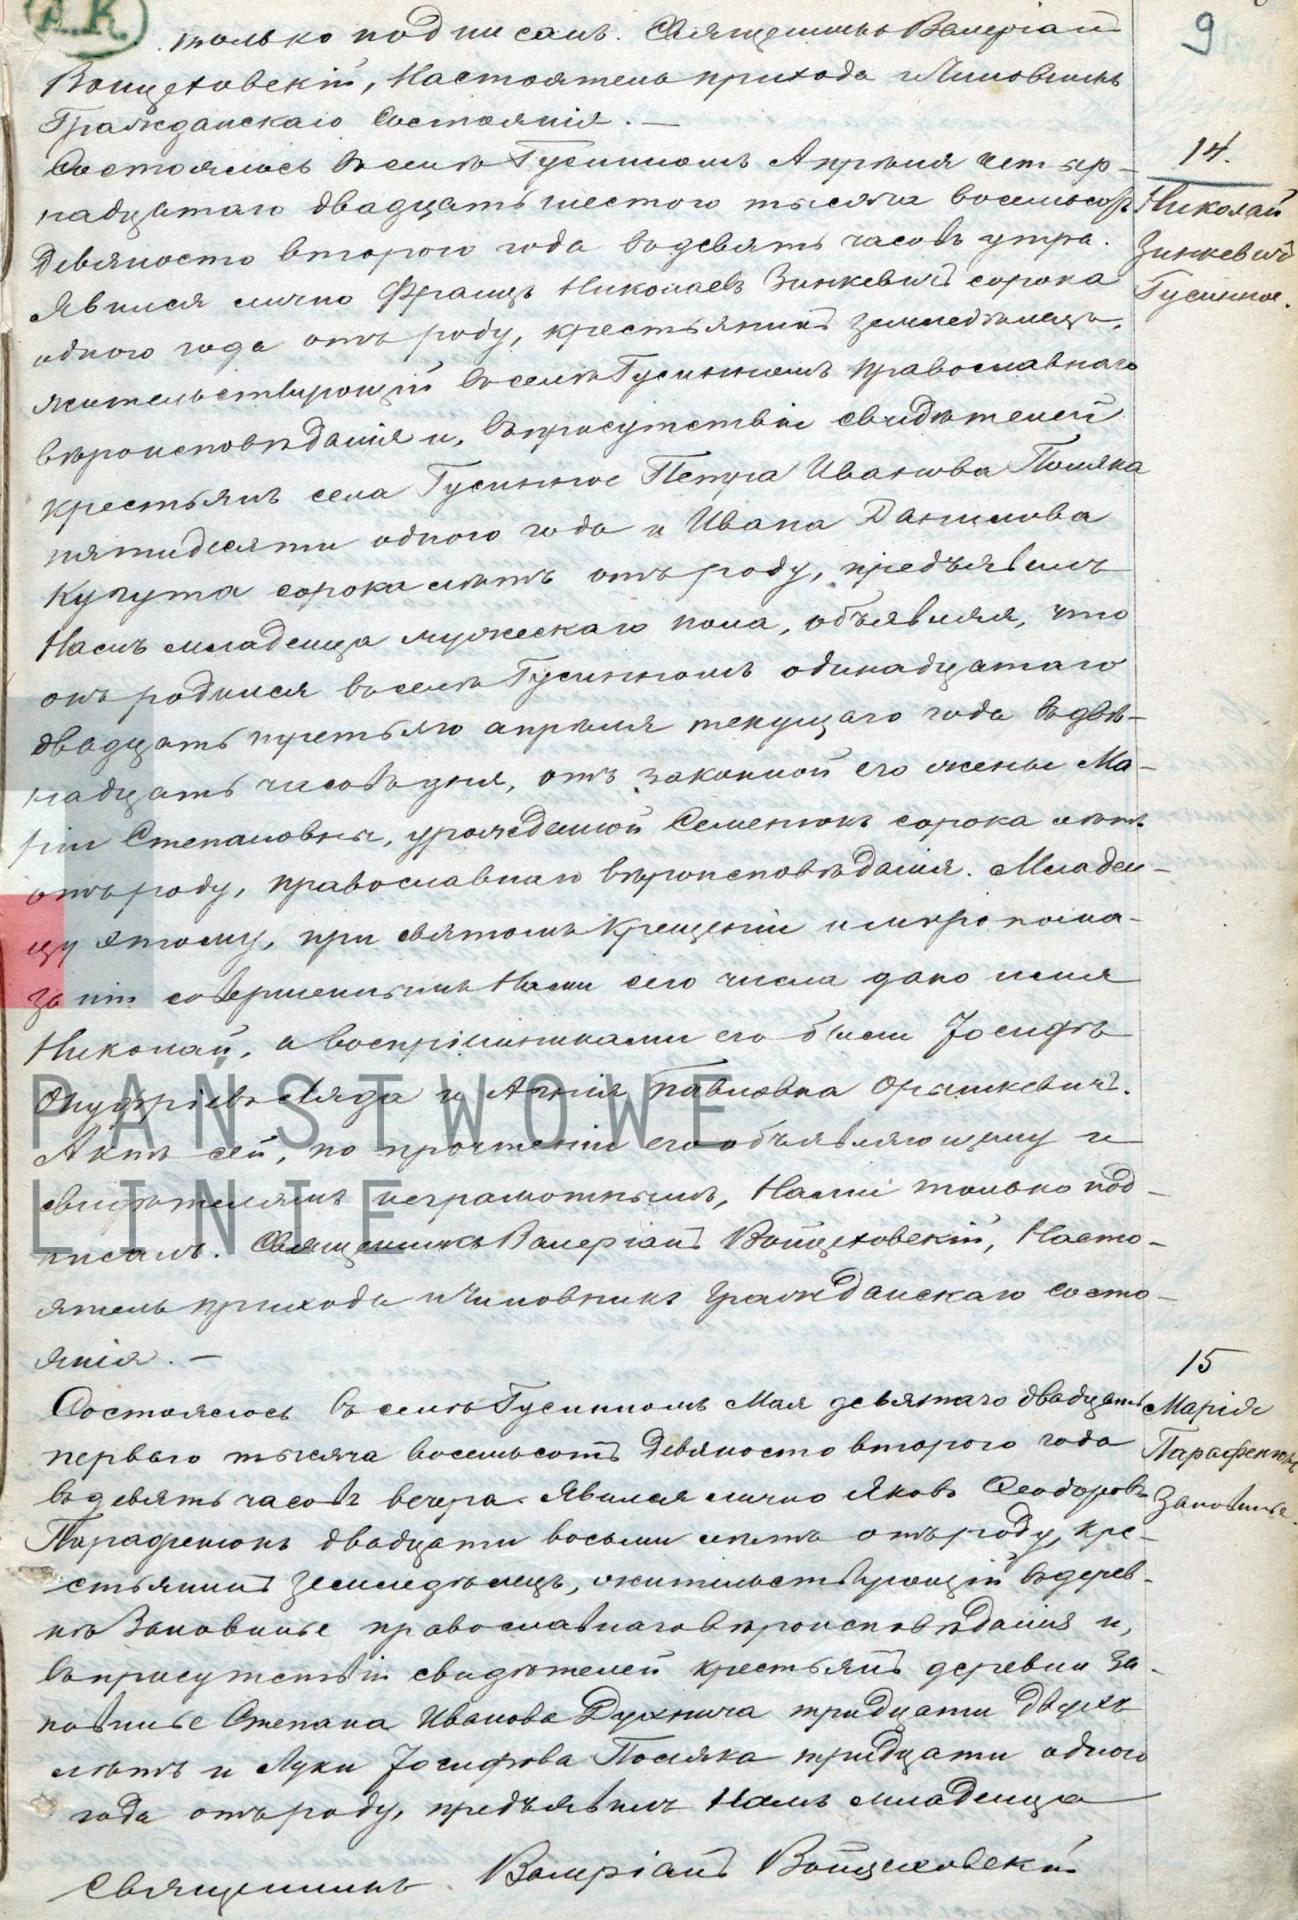 А.К.
9
только подписалъ. Священникъ Валеріанъ
Войцеховскій, Настоятель прихода и Чиновникъ
Гражданскаго Состоянія. —
14.
Николай
Зинкевичъ
Гусинное.
Состоялось въ селѣ Гусинномъ Апрѣля четыр-
надцатаго двадцать шестого тысяча восемьсотъ
девяносто второго года въ девять часовъ утра.
Явился лично Францъ Николаевъ Зинкевичъ сорока
одного года отъ роду, крестьянинъ земледѣлецъ,
жительствующій въ селѣ Гусинномъ православнаго
вѣроисповѣданія и, въ присутствіи свидѣтелей
крестьянъ села Гусинное Петра Иванова Поляка
пятидесяти одного года и Ивана Данилова
сорока лѣтъ отъ роду, предъявилъ
Намъ младенца мужескаго пола, объявляя, что
онъ родился въ селѣ Гусинномъ одинадцатаго
двадцать третьяго апрѣля текущаго года въ двѣ-
надцать часовъ дня, отъ законной его жены Ма-
ріи Степановны, урожденной Семенюкъ сорока лѣтъ
отъ роду, православнаго вѣроисповѣданія. Младен-
цу этому, при святомъ Крещеніи и миропома-
заніи совершенныхъ Нами сего числа дано имя
Николай, а воспріемниками его были Іосифъ
Онуфріевъ Ляда и Анна Павловна Орышкевичъ.
Актъ сей, по прочтеніи его объявляющему и
свидѣтелямъ неграмотнымъ, Нами только под-
писанъ. Священникъ Валеріанъ Войцеховскій, Насто-
ятель прихода и Чиновникъ Гражданскаго Состо-
янія. —
15
Марія
Парафенюкъ
Зановинье.
Состоялось въ селѣ Гусинномъ Мая девятаго двадцать
перваго тысяча восемьсотъ девяносто второго года
въ девять часовъ вечера. Явился лично Яковъ Ѳеодоровъ
Парафенюкъ двадцати восьми лѣтъ отъ роду, кре-
стьянинъ земледѣлецъ, жительствующій въ дерев-
нѣ Зановинье православнаго вѣроисповѣданія и,
въ присутствіи свидѣтелей крестьянъ деревни За-
новинье Степана Иванова Духнича тридцати двухъ
лѣтъ и Луки Іосифова Поляка тридцати одного
года отъ роду, предъявилъ Намъ младенца
Священникъ Валеріанъ Войцеховскій
PAŃSTWOWE
LINIE